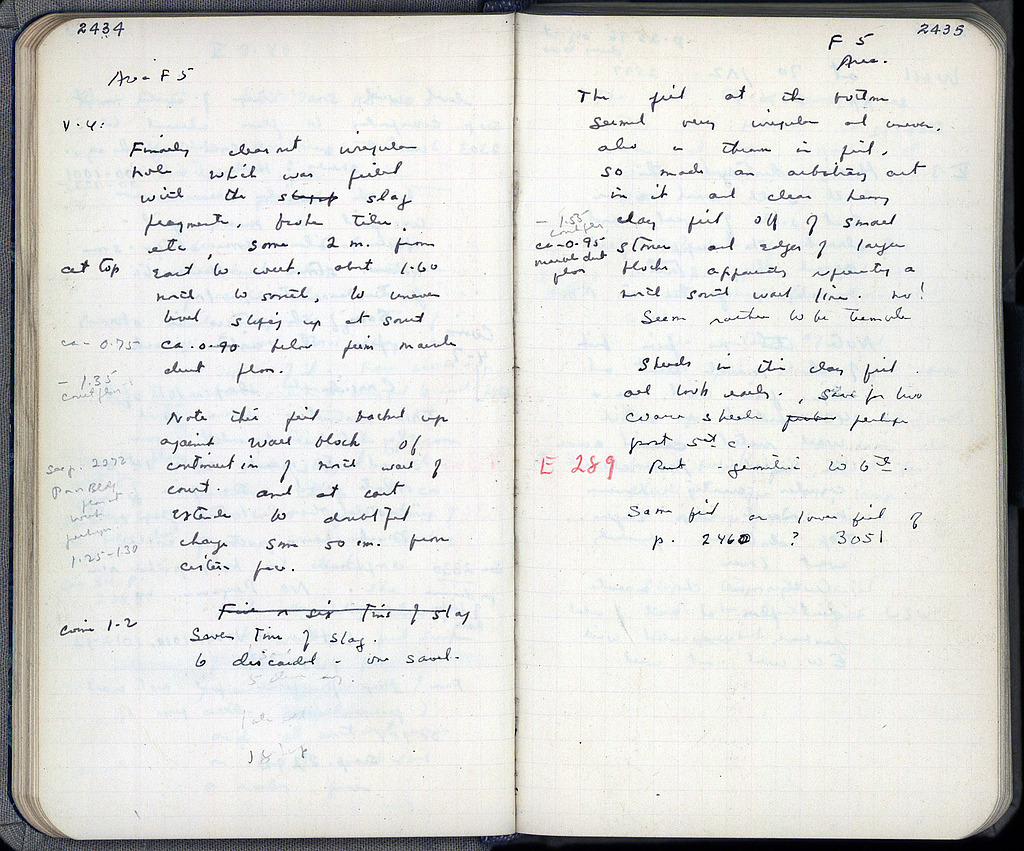 2434
Area F 5
V. 4.
Finished clearing irregular
hole which was filled
with the slag
fragments, broken tiles,
etc. some 2 m. from
at top east to west. about 1.60
north to south, to uneven
level sloping up at south
ca - 0.75 ca. 0.90 below from marble
dust floor.
- 1.35
court floor
Note this fill backed up
against wall block of
continuation of north wall of
court. and at east
extends to doubtful
change some 50 cm. from
cistern face.
1.25-1.30
Five or six tins of slag
coins 1-2 Seven tins of slag.
6 discarded - one saved.
2435
F 5
Area.
The fill at the bottom
seemed very irregular and uneven,
also in them in fill,
so made an arbitrary cut
in it and clear heavy
- 1.55 clay fill off of small
court floor
ca - 0.95 stones and edges of larger
marble dust floor
blocks apparently representing a
north south wall line. no!
Seem rather to be tumble
Sherds in this clay fill
all look early, save for two
coarse sherds perhaps
post 5th c.
E 289 Part - geometric to 6th.
Same fill as lower fill of
p. 2460 ? 3051